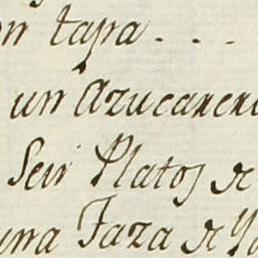 on tapa . . .
un Azucarero
Seis Platos de
una Taza de